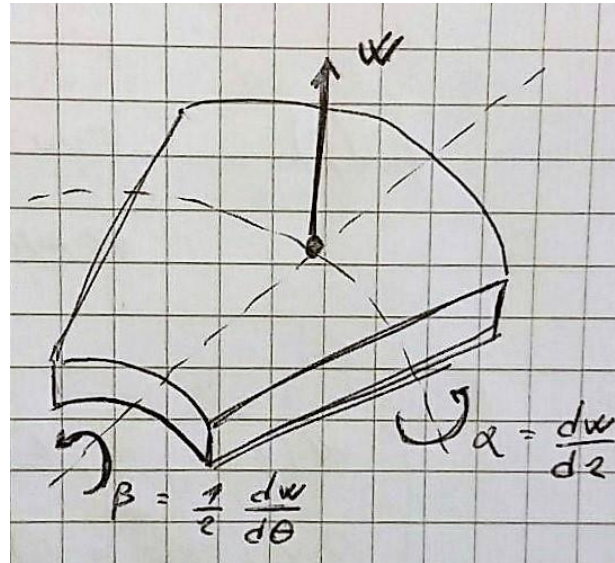 W
α = dw/dz
β = 1/2 dw/dθ